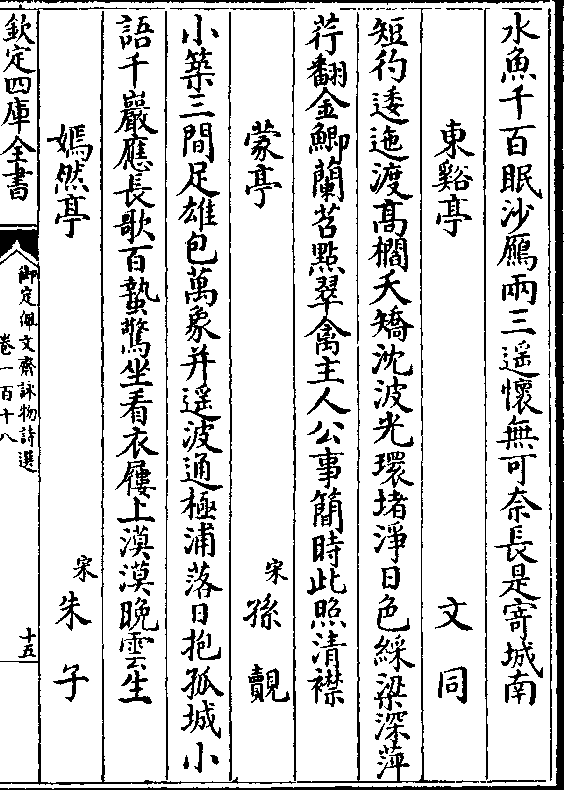 水魚千百眠沙鴈兩三遥懷無可奈長是寄城南
東谿亭 文同
短彴逶迤渡髙櫩夭矯沈波光環堵淨日色綵梁深萍
荇翻金鯽蘭苕點翠禽主人公事簡時此照清襟
蒙亭 宋孫覿
小築三間足雄包萬象并遥波通極浦落日抱孤城小
語千巖應長歌百蟄驚坐看衣屨上漠漠晩雲生
嫣然亭 宋朱子
欽定四庫全書
御定佩文齋詠物詩選
卷一百十八
十五